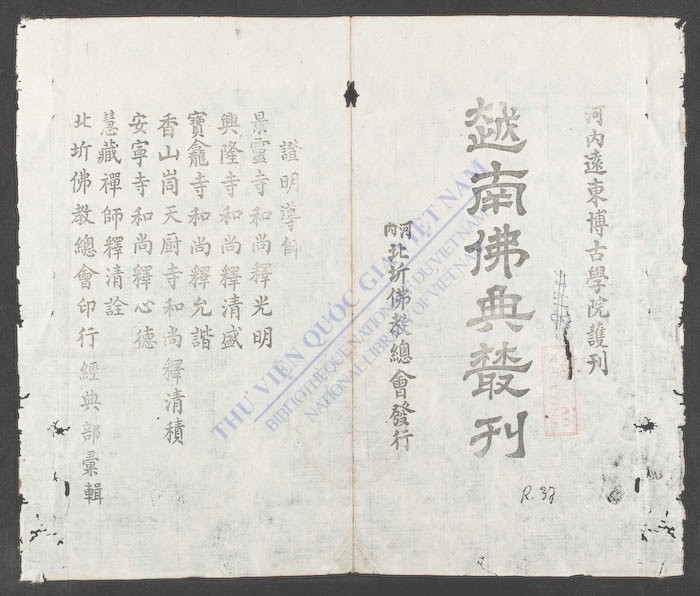 河内遠東博古學院護刊
越南佛典叢刊
河内北圻佛教總會發行
證明導師
景靈寺和尚釋光明
興隆寺和尚釋清盛
寶龕寺和尚釋允諧
香山峝天厨寺和尚釋清積
安寧寺和尚釋心德
慧藏禪師釋清詮
北圻佛教總會印行經典部彙輯
R.37
THƯ VIỆN QUỐC GIA VIỆT NAM
BIBLIOTHÈQUE NATIONALE DU VIETNAM
NATIONAL LIBRARY OF VIETNAM